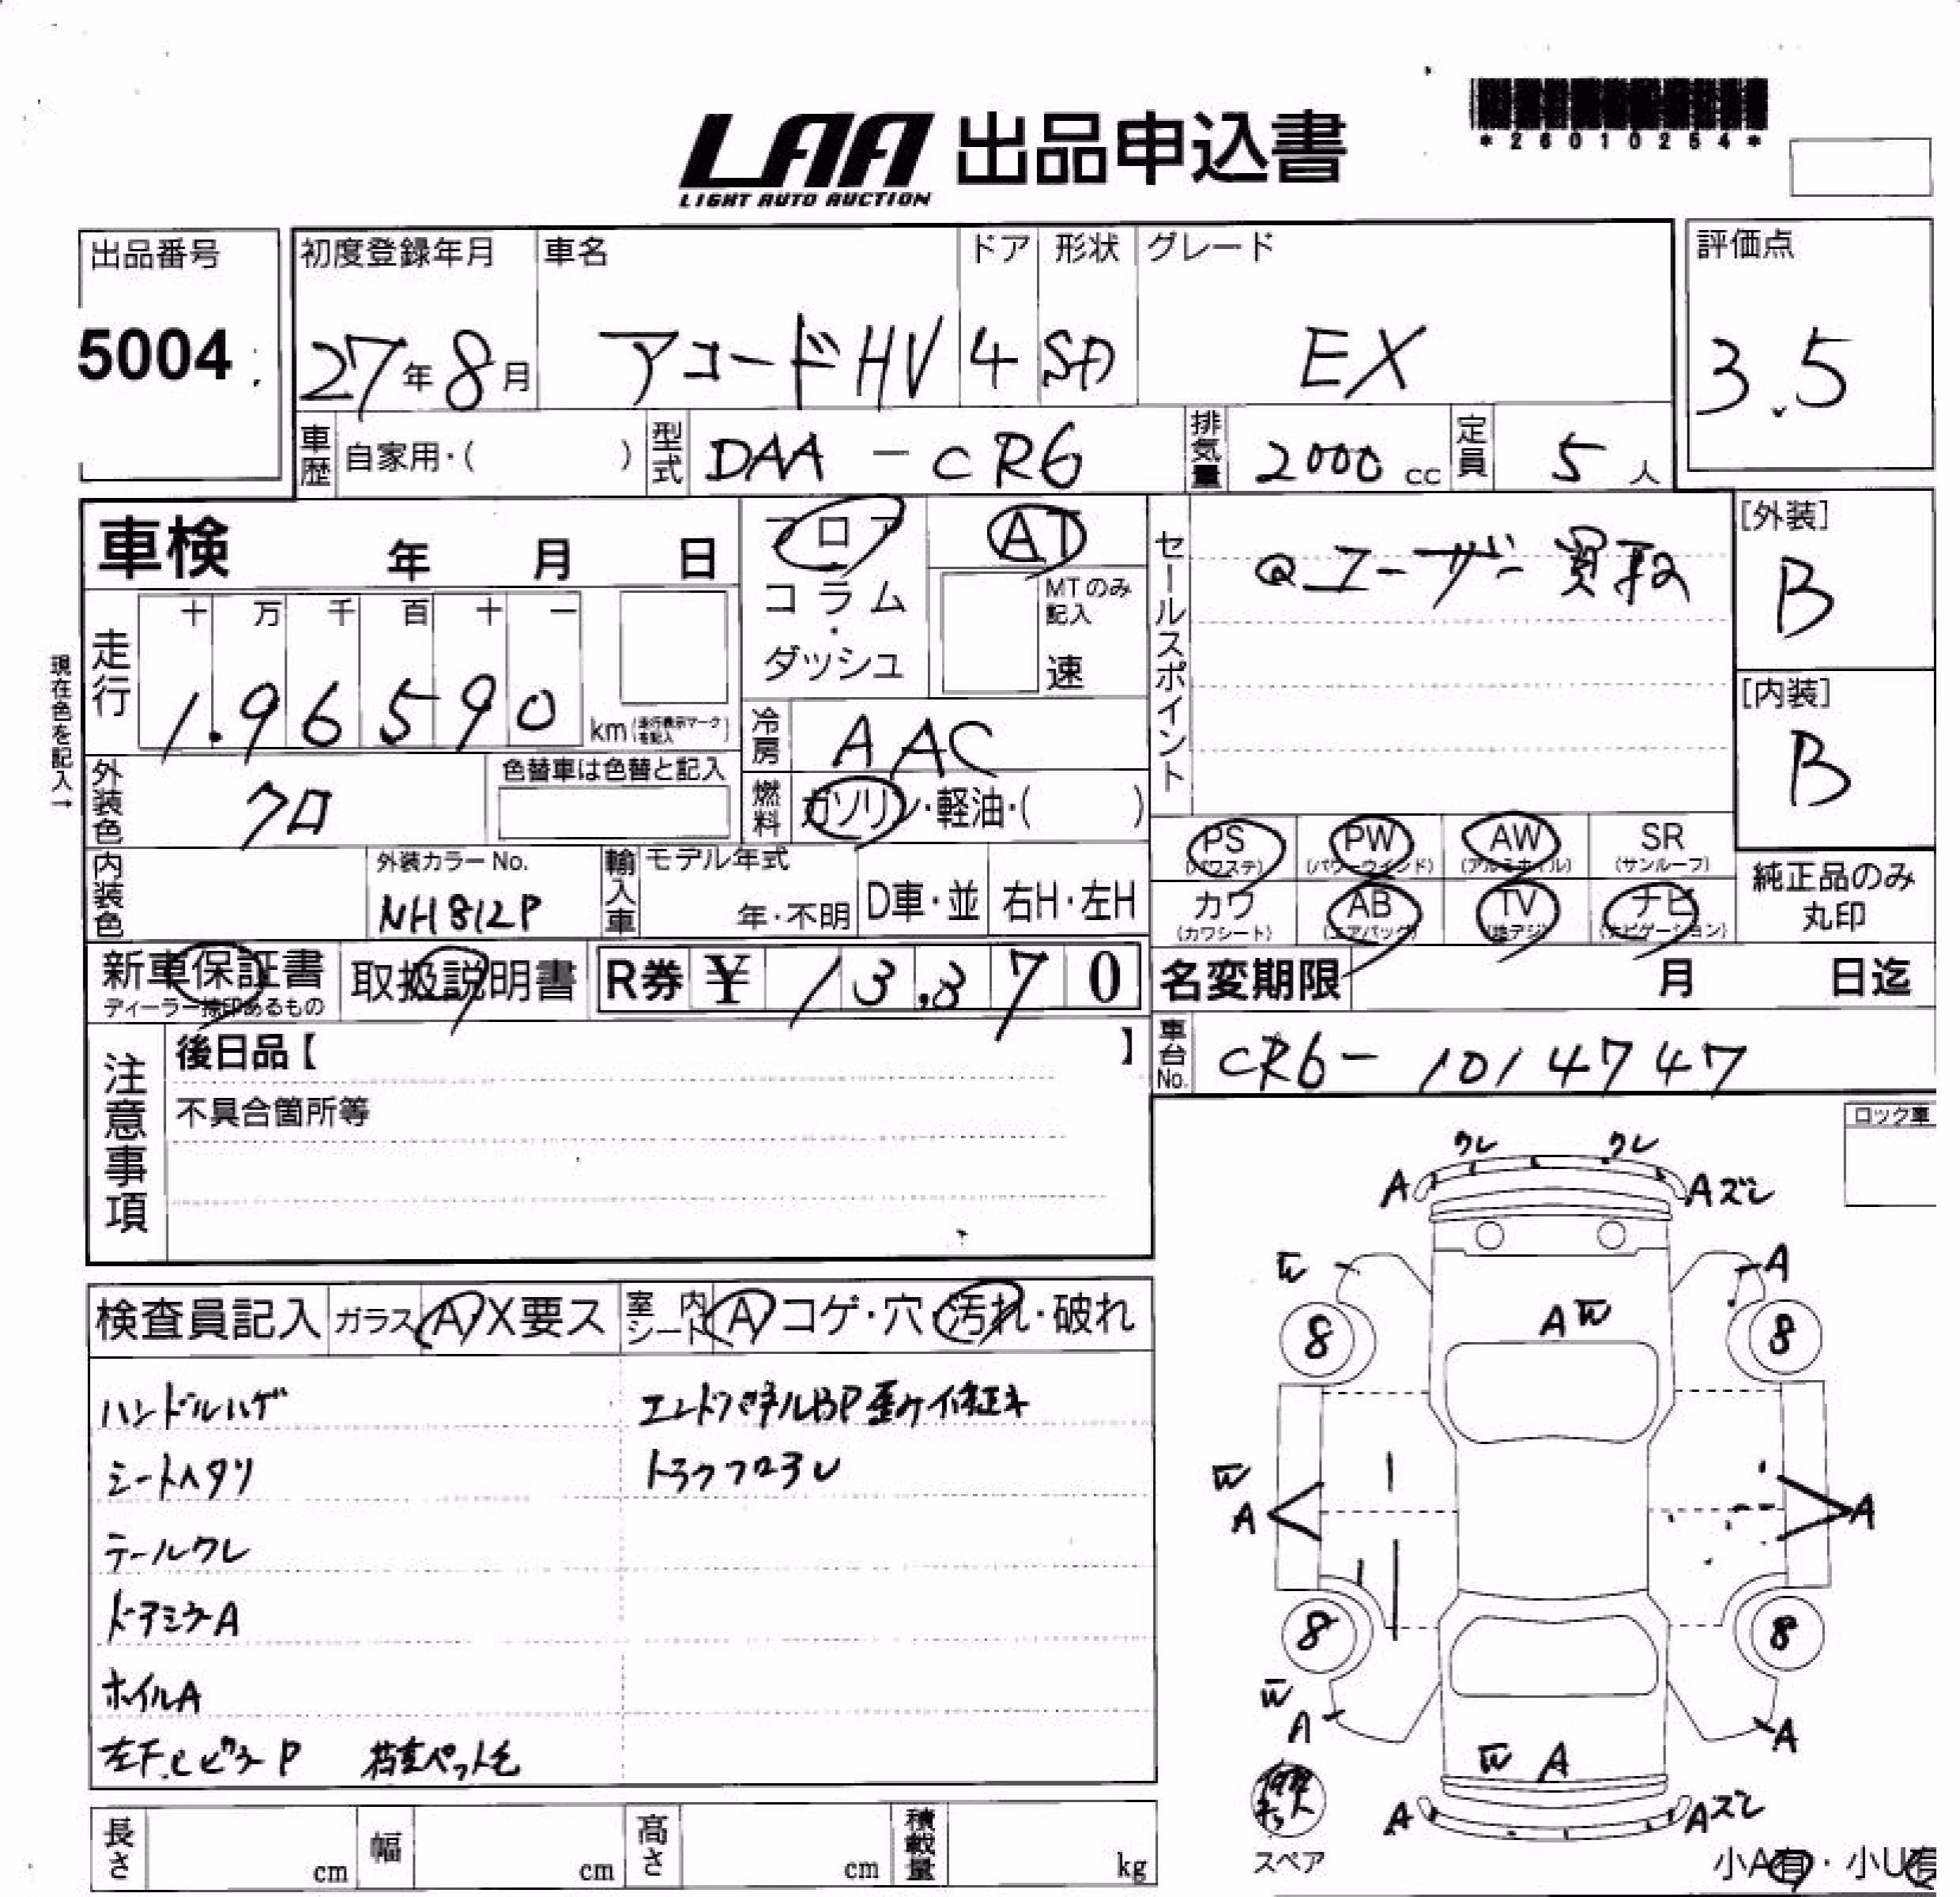 *26010254*
LAA 出品申込書
LIGHT AUTO AUCTION
出品番号
5004
初度登録年月
27年8月
車名
アコードHV
ドア
4
形状
SD
グレード
EX
評価点
3.5
車歴 自家用・( )
型式 DAA-CR6
排気量 2000 cc
定員 5人
車検 年 月 日
フロア
コラム・ダッシュ
AT
MTのみ記入
速
セールスポイント
@ユーザー買取
[外装]
B
[内装]
B
現在色を記入→
走行 十 万 千 百 十 一
1.96590 km(走行表示マークを記入)
冷房 AAC
燃料 ガソリン・軽油・( )
外装色 クロ
色替車は色替と記入
内装色
外装カラーNo.
NH812P
輸入車 モデル年式
年・不明
D車・並
右H・左H
PS (パワステ)
PW (パワーウインド)
AW (アルミホイル)
SR (サンルーフ)
カワ (カワシート)
AB (エアバッグ)
TV (地デジ)
ナビ (ナビゲーション)
純正品のみ丸印
新車保証書
ディーラー捺印あるもの
取扱説明書
R券 ¥ 13,370
名変期限 月 日迄
車台No. CR6-1014747
注意事項
後日品【 】
不具合箇所等
ロック車
検査員記入 ガラス A X要ス
室内シート A コゲ・穴・汚れ・破れ
ハンドルハゲ
シートヘタリ
テールワレ
ドアミラーA
ホイルA
左F.Cピラー P
エンドパネルBP歪ケイ修正キ
トランクフロア
ワレ ワレ
A Aズレ
W A
A W
8 8
W
A A
8 8
W
A A
W A
A Aズレ
スペア
小A有・小U有
長さ cm
幅 cm
高さ cm
積載量 kg